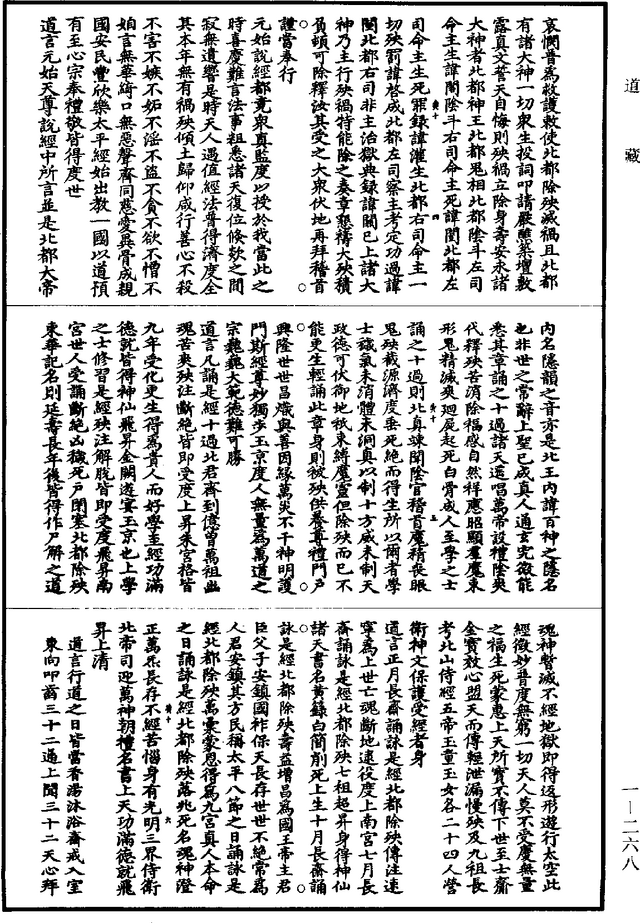 道藏
一—二六八
哀憫普為救護敕使北都除殃滅禍且北都
有諸大神一切衆生投詞叩請嚴醮築壇敷
露真文誓天自悔則殃禍立除身壽安永諸
大神者北都神王北都鬼相北都陰斗左司
命主生諱閶陰斗右司命主死諱閶北都左
司命主生死罪錄諱灌生北都右司命主一
切殃罰諱啓成北都左司察主考定功過諱
閶北都右司非主治獄典錄諱關已上諸大
神乃主行殃禍特能除之奏章懇禱大殃積
負頓可除釋汝其受之大衆伏地再拜稽首
謹當奉行
元始說經都竟衆真監度以授於我當此之
時喜慶難言法事粗悉諸天復位倏欻之間
寂無遺響是時天人遇值經法普得濟度全
其本年無有禍殃傾土歸仰咸行善心不殺
不害不嫉不妬不淫不盜不貪不欲不憎不
㛐言無華綺口無惡聲齊同慈愛異骨成親
國安民豐欣樂太平經始出教一國以道預
有至心宗奉禮敬皆得度世
道言元始天尊說經中所言並是北都大帝
內名隱韻之音亦是北王內諱百神之隱名
也非世之常辭上聖已成真人通玄究微能
悉其章誦之十過諸天還唱萬帝設禮陰爽
代釋殃苦消除福感自然祥應昭顯羣魔束
形鬼精滅爽迴屍起死白骨成人至學之士
誦之十過則北真竦閶陰官稽首魔精喪眼
鬼殃截源濟度垂死絕而得生所以爾者學
士穢氣未消體未洞真以制十方威未制天
政德可伏御地袛束縛魔靈但除殃而已不
能更生輕誦此章身則被殃供養尊禮門戶
興隆世世昌熾與善因緣萬災不干神明護
門斯經尊妙獨步玉京度人無量為萬道之
宗巍巍大範德難可勝
道言凡誦是經十過北君齊到億曽萬祖幽
魂苦爽殃注斷絕皆即受度上昇朱宮格皆
九年受化更生得為貴人而好學至經功滿
德就皆得神仙飛昇金闕遊宴玉京也上學
之士修習是經殃注解脫皆即受度飛昇南
宮世人受誦斷絕凶穢死戶閉塞北都除殃
東華記名則延壽長年後皆得作尸解之道
魂神暫滅不經地獄即得返形遊行太空此
經微妙普度無窮一切天人莫不受慶無量
之福生死蒙惠上天所寶不傳下世至士齎
金寶效心盟天而傳輕泄漏慢殃及九祖長
考北山侍經五帝玉童玉女各二十四人營
衛神文保護受經者身
道言正月長齋誦詠是經北都除殃傳注遠
寧為上世亡魂斷地逺役度上南宮七月長
齋誦詠是經北都除殃七祖超昇身得神仙
諸天書名黃籙白簡削死上生十月長齋誦
詠是經北都除殃壽益增昌為國王帝主君
臣父子安鎮國祚保天長存世世不絕常為
人君安鎮其方民稱太平八節之日誦詠是
經北都除殃萬彙蒙恩得為九宮真人本命
之日誦詠是經北都除殃落兆死名魂神澄
正萬炁長存不經苦惱身有光明三界侍衛
北帝司迎萬神朝禮名書上天功滿德就飛
昇上清
道言行道之日皆當香湯沐浴齋戒入室
東向叩齒三十二通上聞三十二天心拜